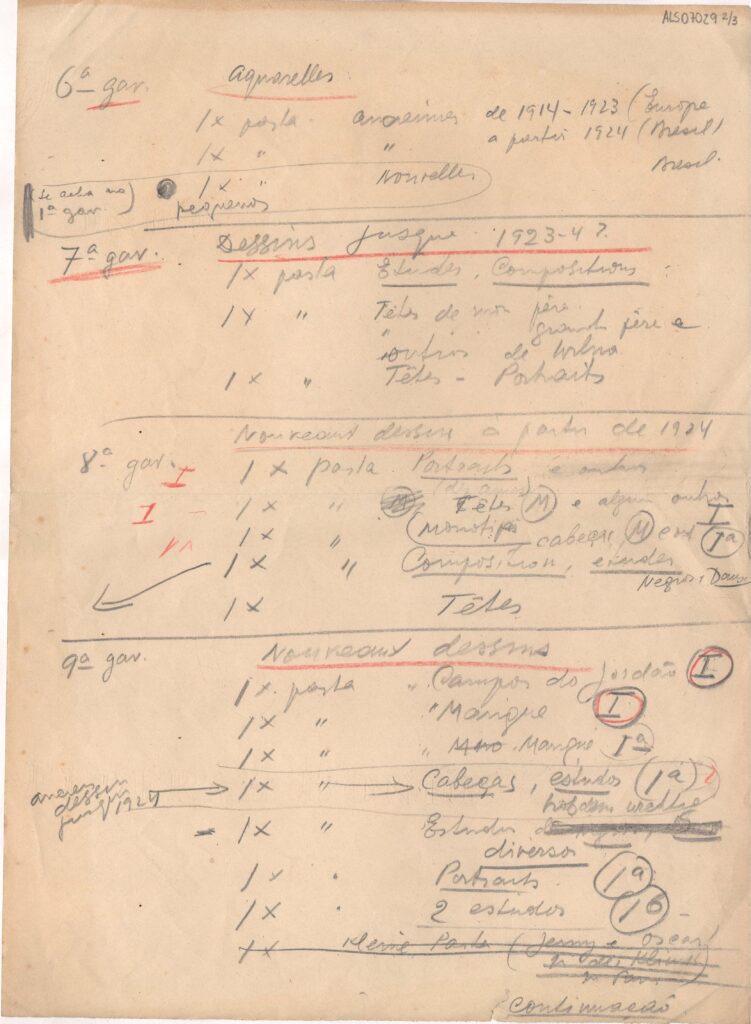 ALS07029 2/3
6ª gav. Aquarelles
1x pasta anciennes de 1914-1923 (Europe
1x " " a partir 1924 (Bresil)
Bresil.
1x " Nouvelles
(se acha na
1ª gav.)
pequenos
7ª gav. Dessins jusque 1923-4?
1x pasta Etudes, Compositions
1x " Têtes de mon père
" grand père e
outros de Wilna
1x " Têtes - Portraits
Nouveaux dessins à partir de 1924
8ª gav. I 1x pasta Portraits e outros
I 1x " Têtes (M) e algum outros I
1x " (Monotipi cabeças (M) em 1ª
1x " Composition, etudes
Negros, Dans
1x Têtes
9ª gav. Nouveaux dessins
1x pasta " Campos do Jordão I
1x " " Mangue I
1x " " Mangue 1ª
1x " Cabeças, estudos (1ª) ?
dessin
1924
- 1x " Estudos
diversos
1x " Portraits 1ª
1x " 2 estudos 1b -
1x Kleine Pasta (Jenny e Oscar)
Continuação